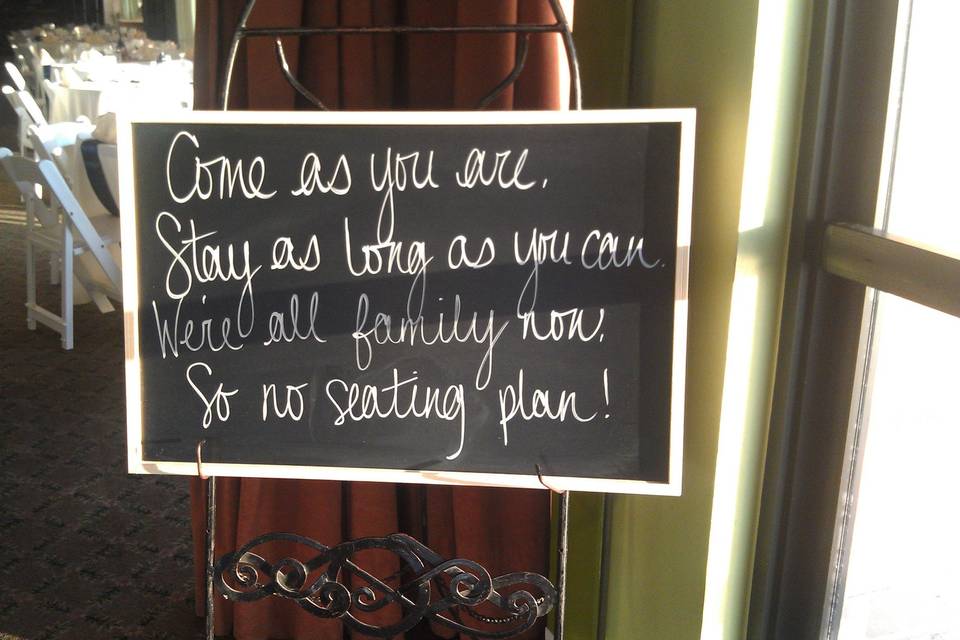 Come as you are.
Stay as long as you can.
We're all family now.
So no seating plan!